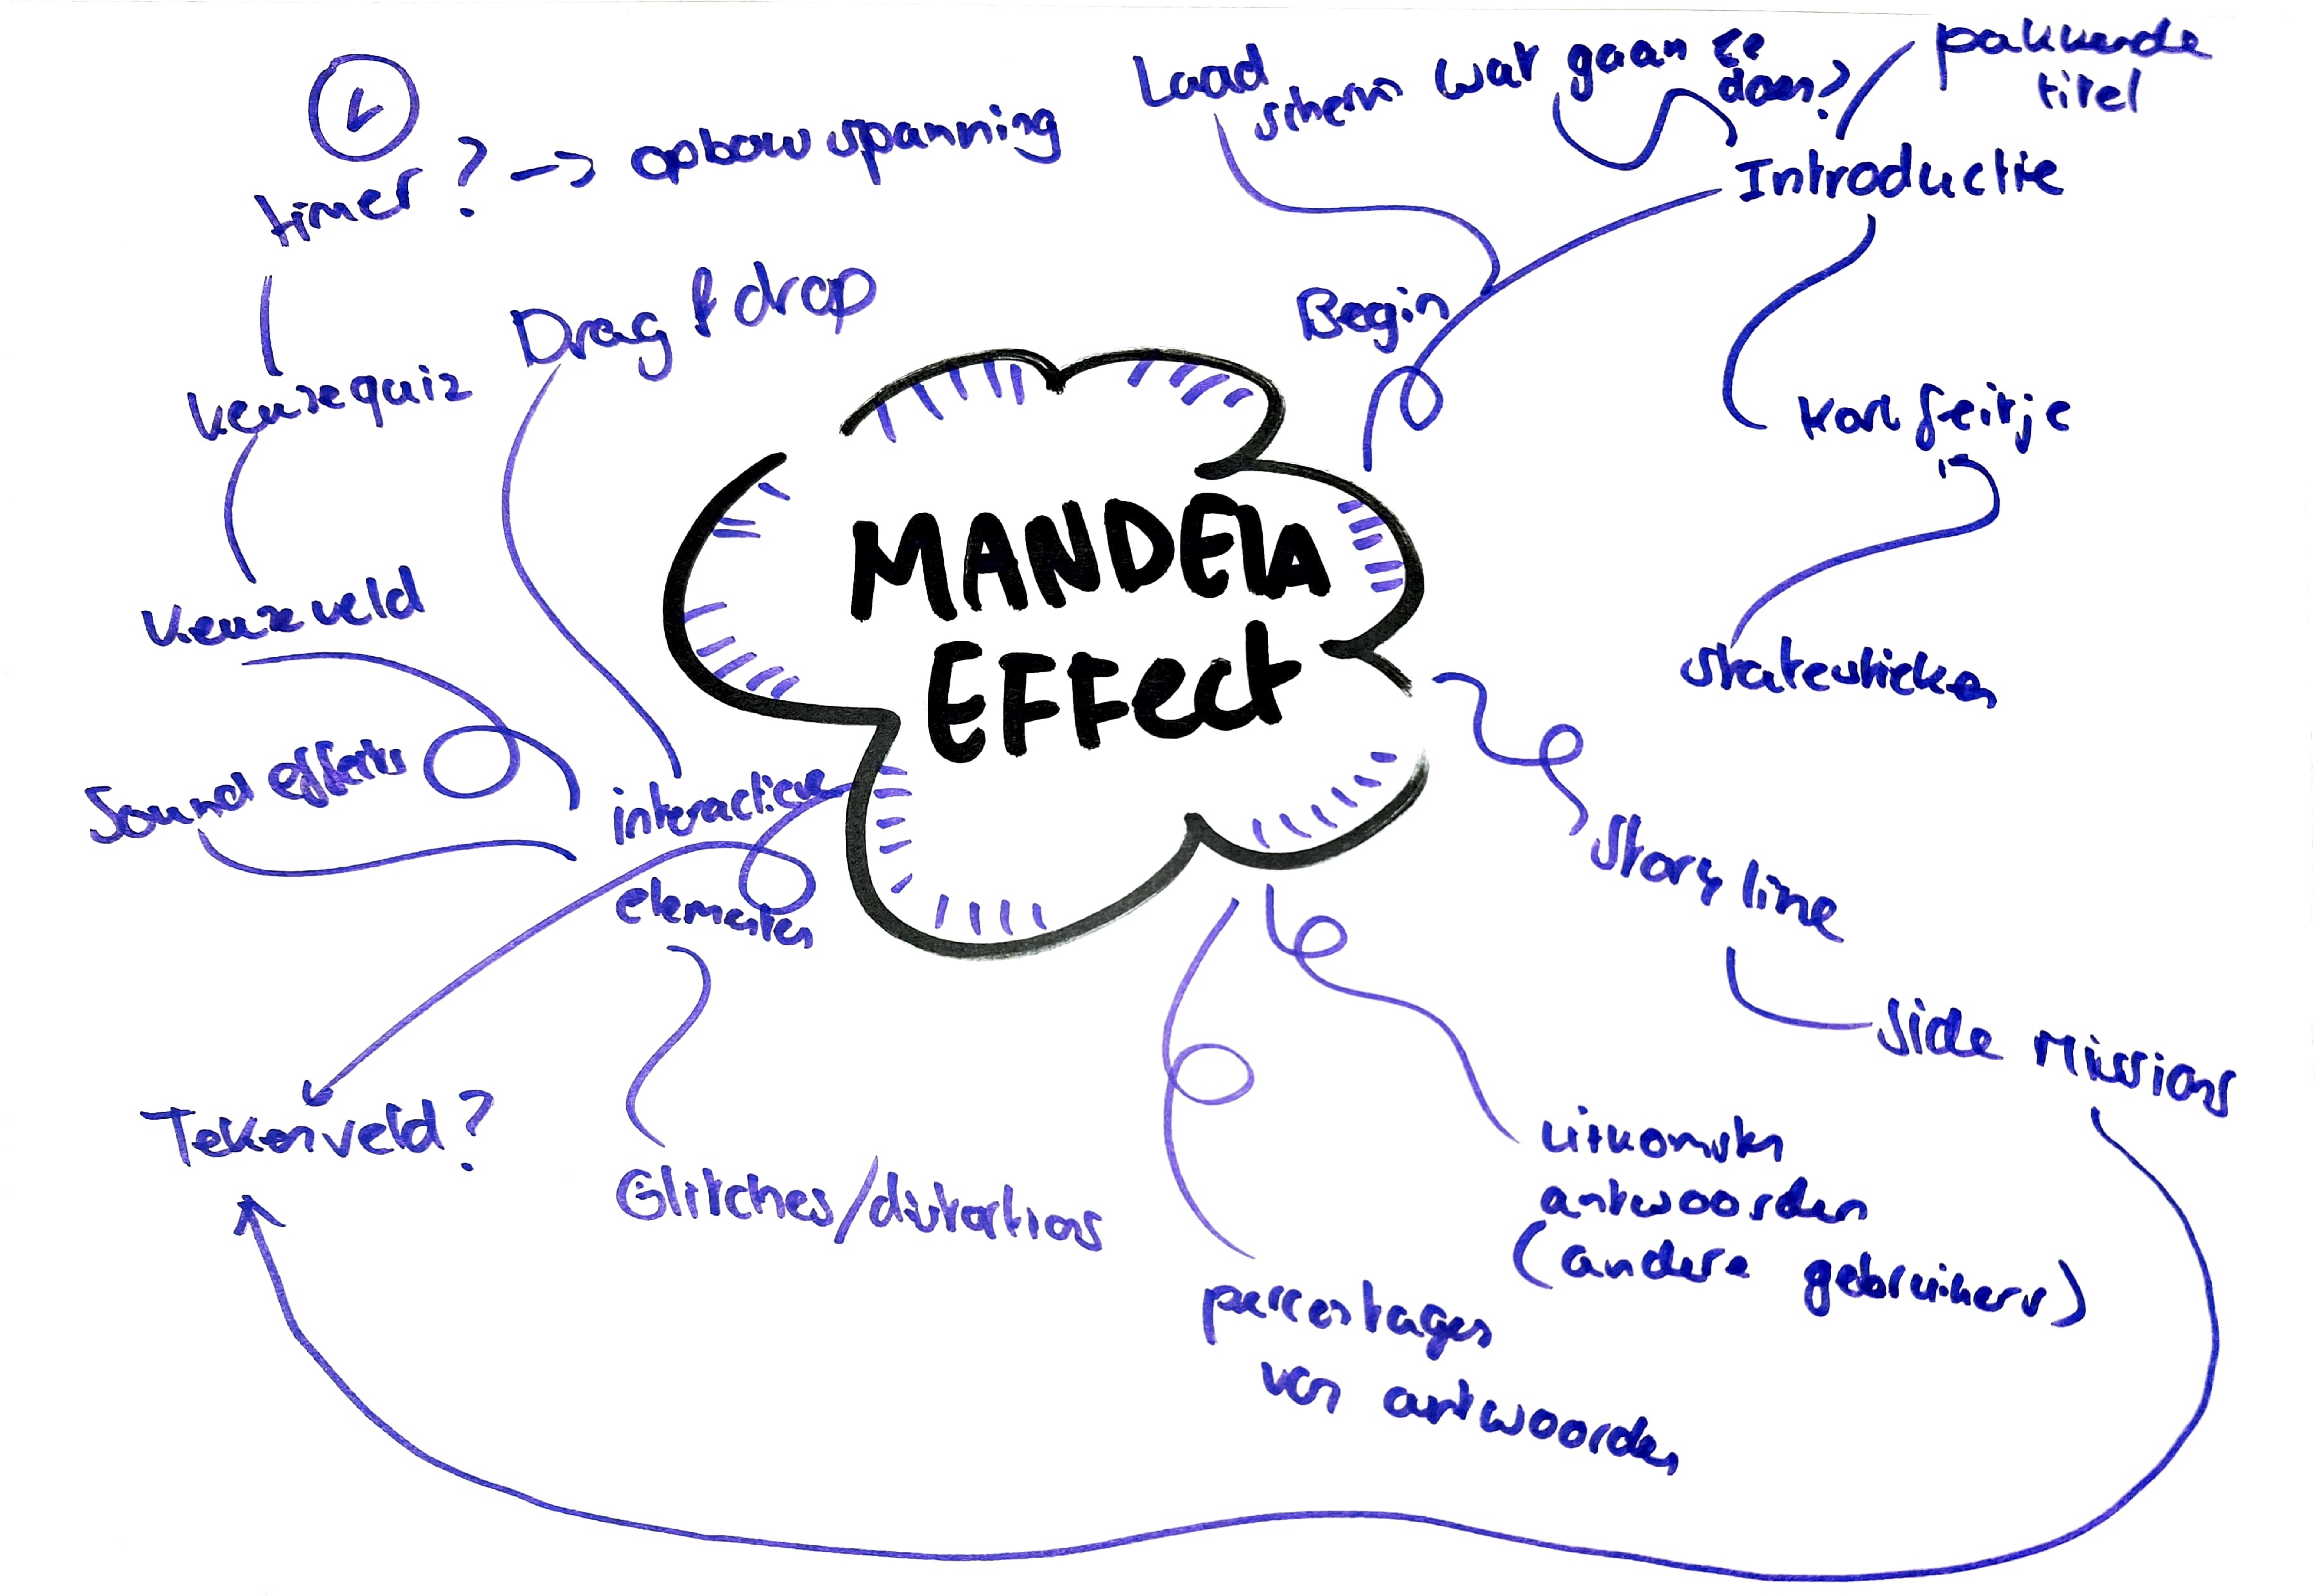 Laad
scherm
wat gaan ze
doen?
pakkende
titel
Introductie
timer? -> opbouw spanning
Drag & drop
Begin
keuzequiz
kort feitje
MANDELA
EFFect
keuzeveld
statestieken
Sound effects
interactieve
elementen
Story line
Side Missions
Tekenveld?
Glitches/distortions
uitkomsten
antwoorden
(andere gebruikers)
percentages
van antwoorden